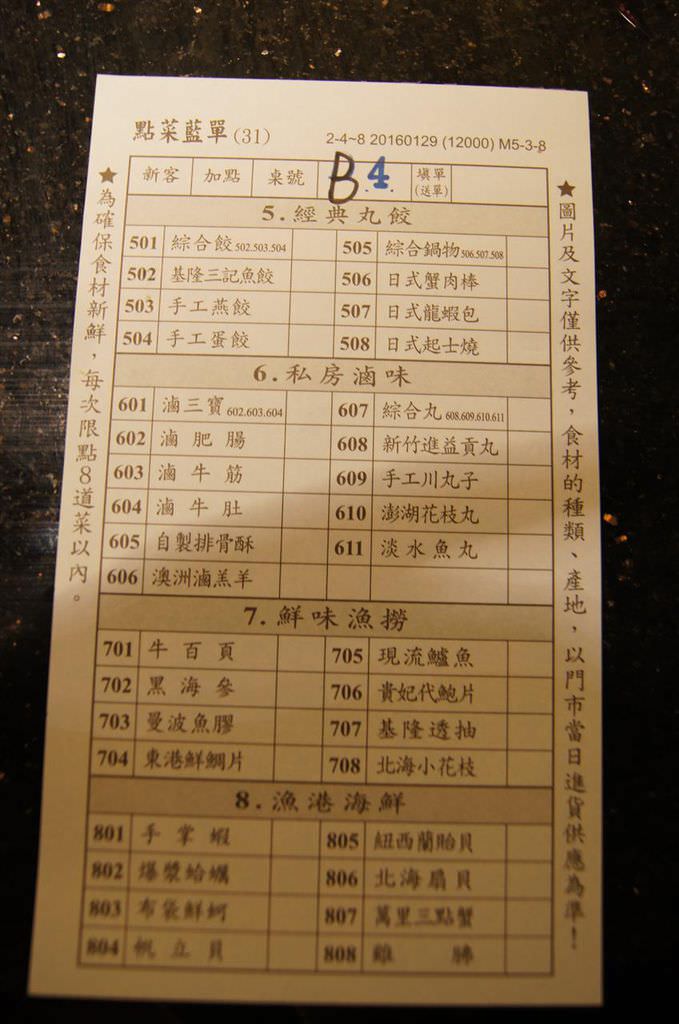 點菜藍單 (31)
2-4~8 20160129 (12000) M5-3-8
新客 加點 桌號 B 4 填單 (送單)
★為確保食材新鮮，每次限點8道菜以內。
5.經典丸餃
501 綜合餃 502.503.504 505 綜合鍋物 506.507.508
502 基隆三記魚餃 506 日式蟹肉棒
503 手工燕餃 507 日式龍蝦包
504 手工蛋餃 508 日式起士燒
6.私房滷味
601 滷三寶 602.603.604 607 綜合丸 608.609.610.611
602 滷肥腸 608 新竹進益貢丸
603 滷牛筋 609 手工川丸子
604 滷牛肚 610 澎湖花枝丸
605 自製排骨酥 611 淡水魚丸
606 澳洲滷羔羊
7.鮮味漁撈
701 牛百頁 705 現流鱸魚
702 黑海參 706 貴妃代鮑片
703 曼波魚膠 707 基隆透抽
704 東港鮮鯛片 708 北海小花枝
8.漁港海鮮
801 手掌蝦 805 紐西蘭貽貝
802 爆漿蛤蠣 806 北海扇貝
803 布袋鮮蚵 807 萬里三點蟹
804 帆立貝 808 雞
★圖片及文字僅供參考，食材的種類、產地，以門市當日進貨供應為準！